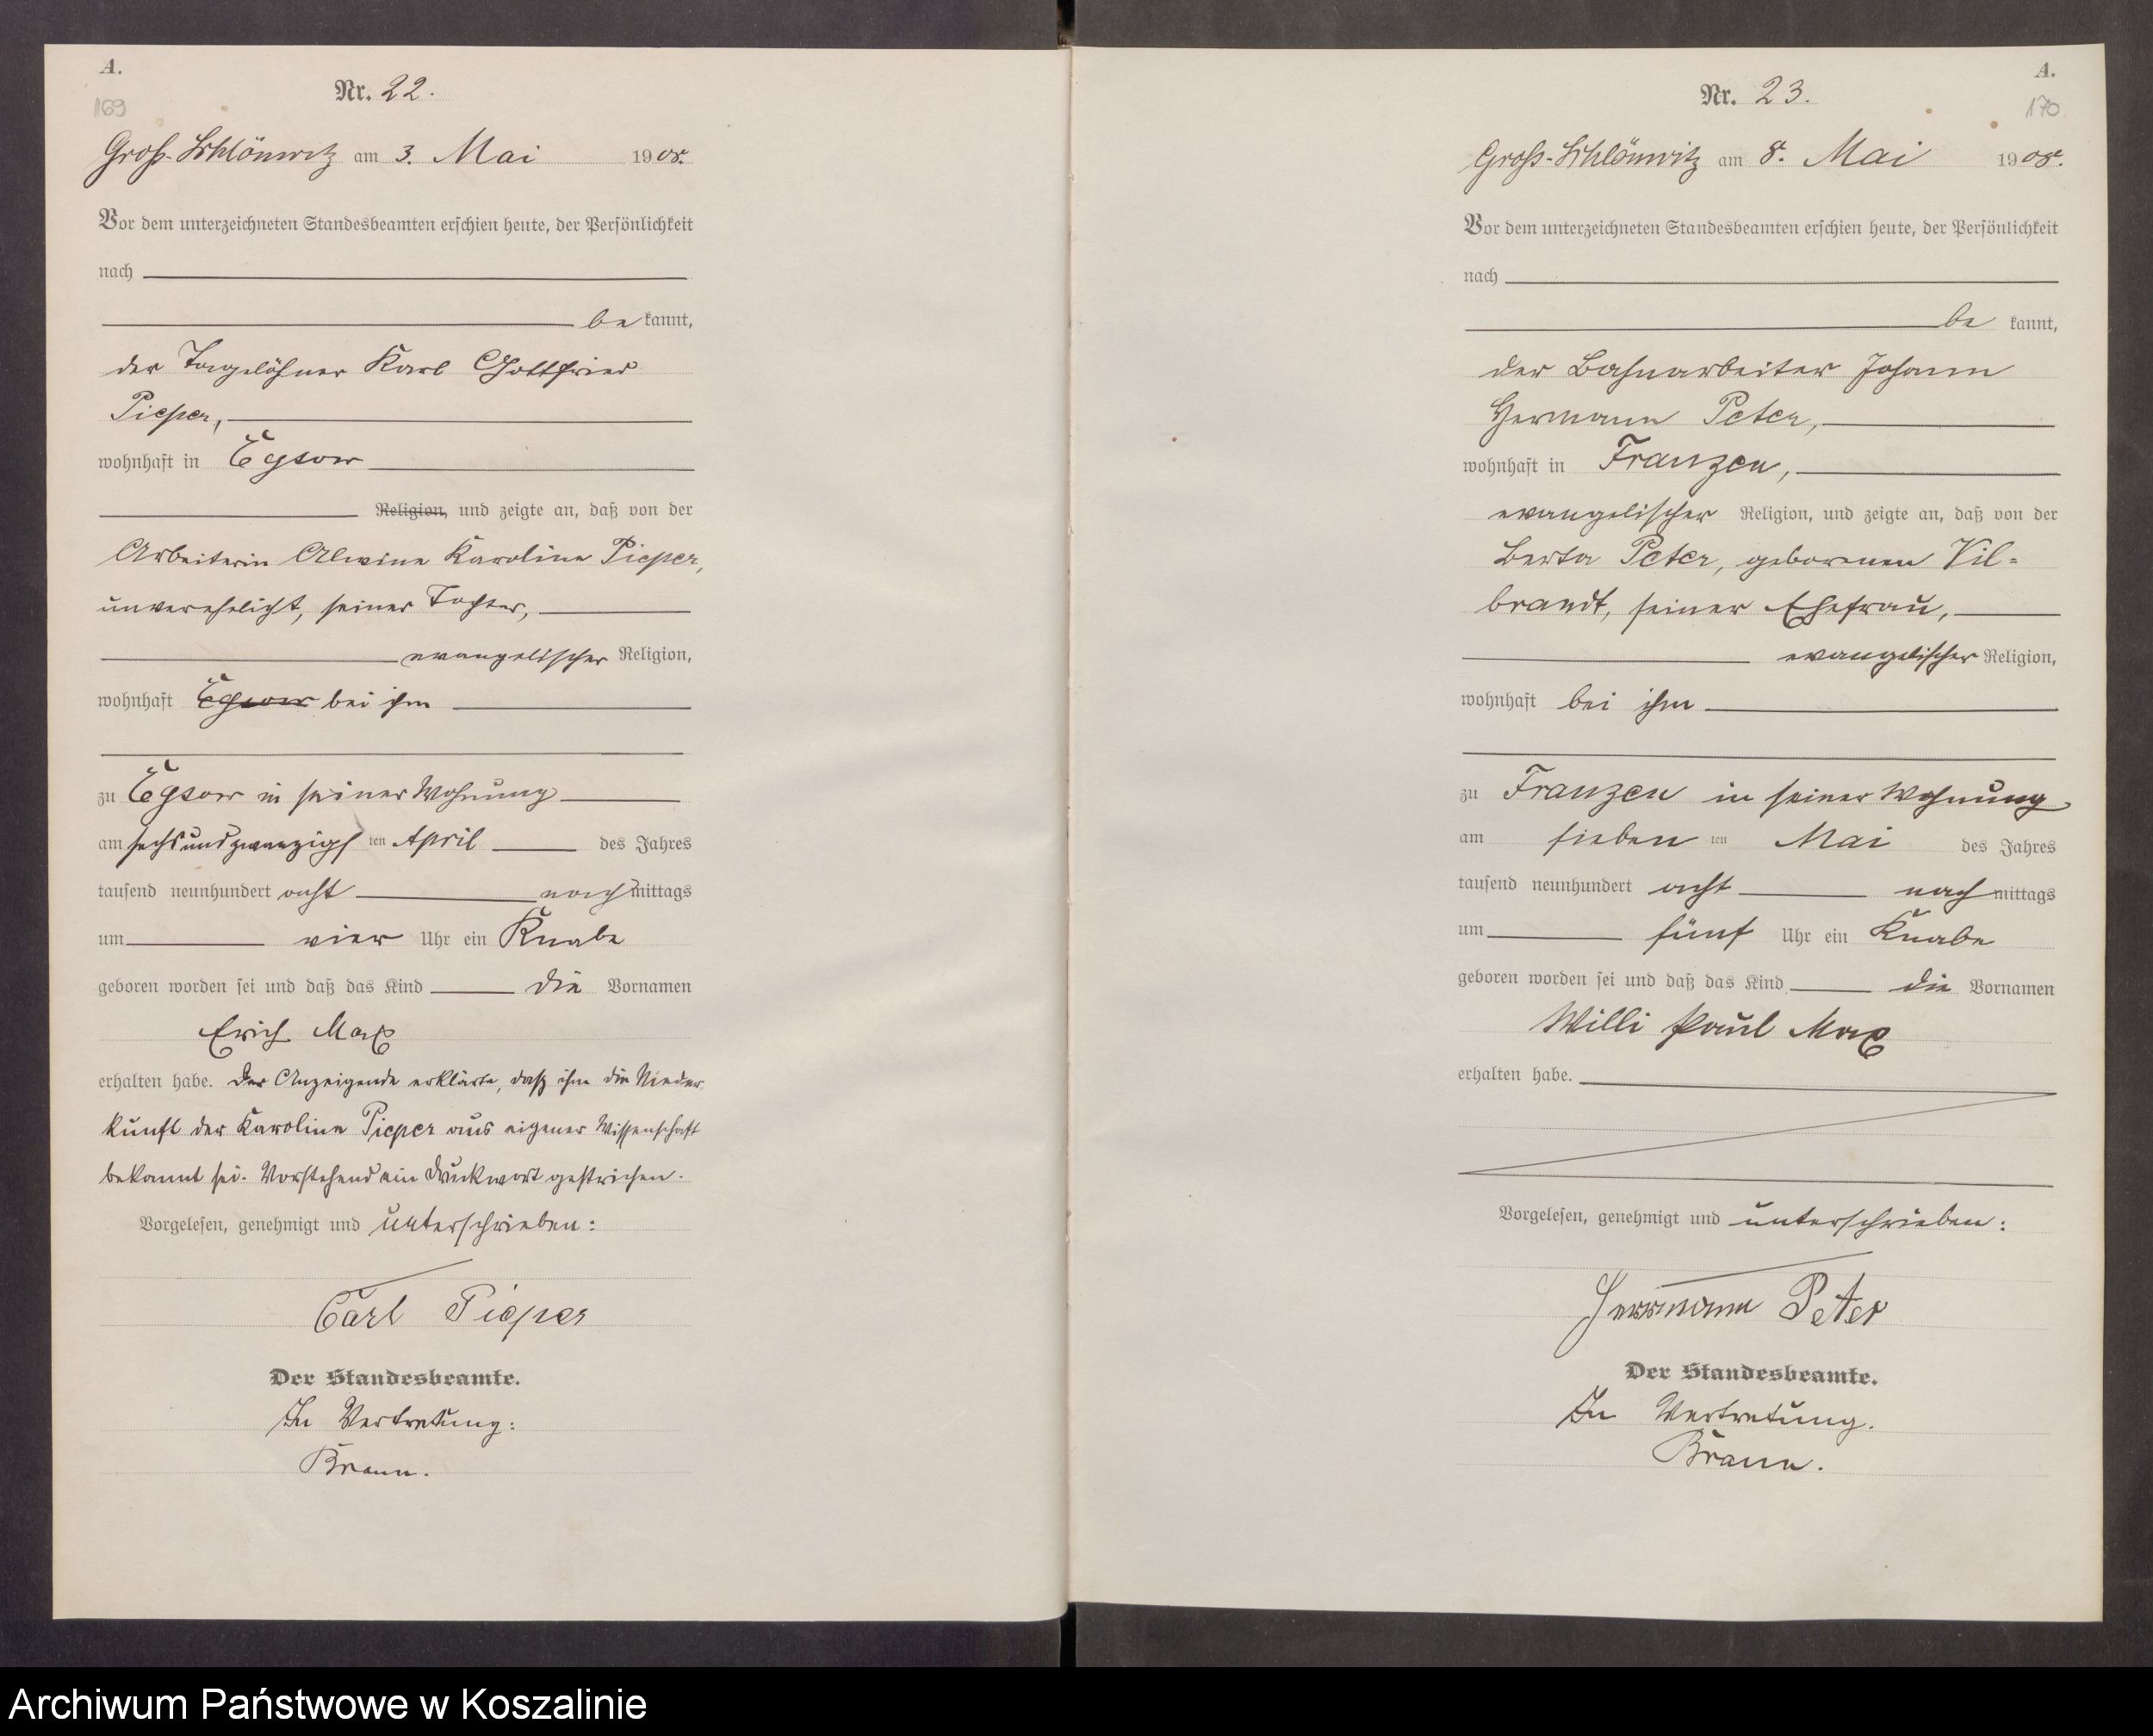 A.
169
Nr. 22.
Groß-Schlönwitz am 3. Mai 1908.
Vor dem unterzeichneten Standesbeamten erschien heute, der Persönlichkeit
nach
be kannt,
der Tagelöhner Karl Gottfried
Pieper,
wohnhaft in Egsow
Religion, und zeigte an, daß von der
Arbeiterin Alwine Karoline Pieper,
unverehelicht, seiner Tochter,
evangelischer Religion,
wohnhaft Egsow bei ihm
zu Egsow in seiner Wohnung
am sechsundzwanzigs ten April des Jahres
tausend neunhundert acht nachmittags
um vier Uhr ein Knabe
geboren worden sei und daß das Kind die Vornamen
Erich Max
erhalten habe. Der Anzeigende erklärte, daß ihm die Nieder
kunft der Karoline Pieper aus eigener Wissenschaft
bekannt sei. Vorstehend ein Druckwort gestrichen.
Vorgelesen, genehmigt und unterschrieben:
Carl Pieper
Der Standesbeamte.
In Vertretung:
Braun.
A.
170
Nr. 23.
Groß-Schlönwitz am 8. Mai 1908.
Vor dem unterzeichneten Standesbeamten erschien heute, der Persönlichkeit
nach
be kannt,
der Bahnarbeiter Johann
Hermann Peter,
wohnhaft in Franzen,
evangelischer Religion, und zeigte an, daß von der
Berta Peter, geborenen Vil=
brandt, seiner Ehefrau,
evangelischer Religion,
wohnhaft bei ihm
zu Franzen in seiner Wohnung
am sieben ten Mai des Jahres
tausend neunhundert acht nachmittags
um fünf Uhr ein Knabe
geboren worden sei und daß das Kind die Vornamen
Willi Paul Max
erhalten habe.
Vorgelesen, genehmigt und unterschrieben:
Herrmann Peter
Der Standesbeamte.
In Vertretung.
Braun.
Archiwum Państwowe w Koszalinie